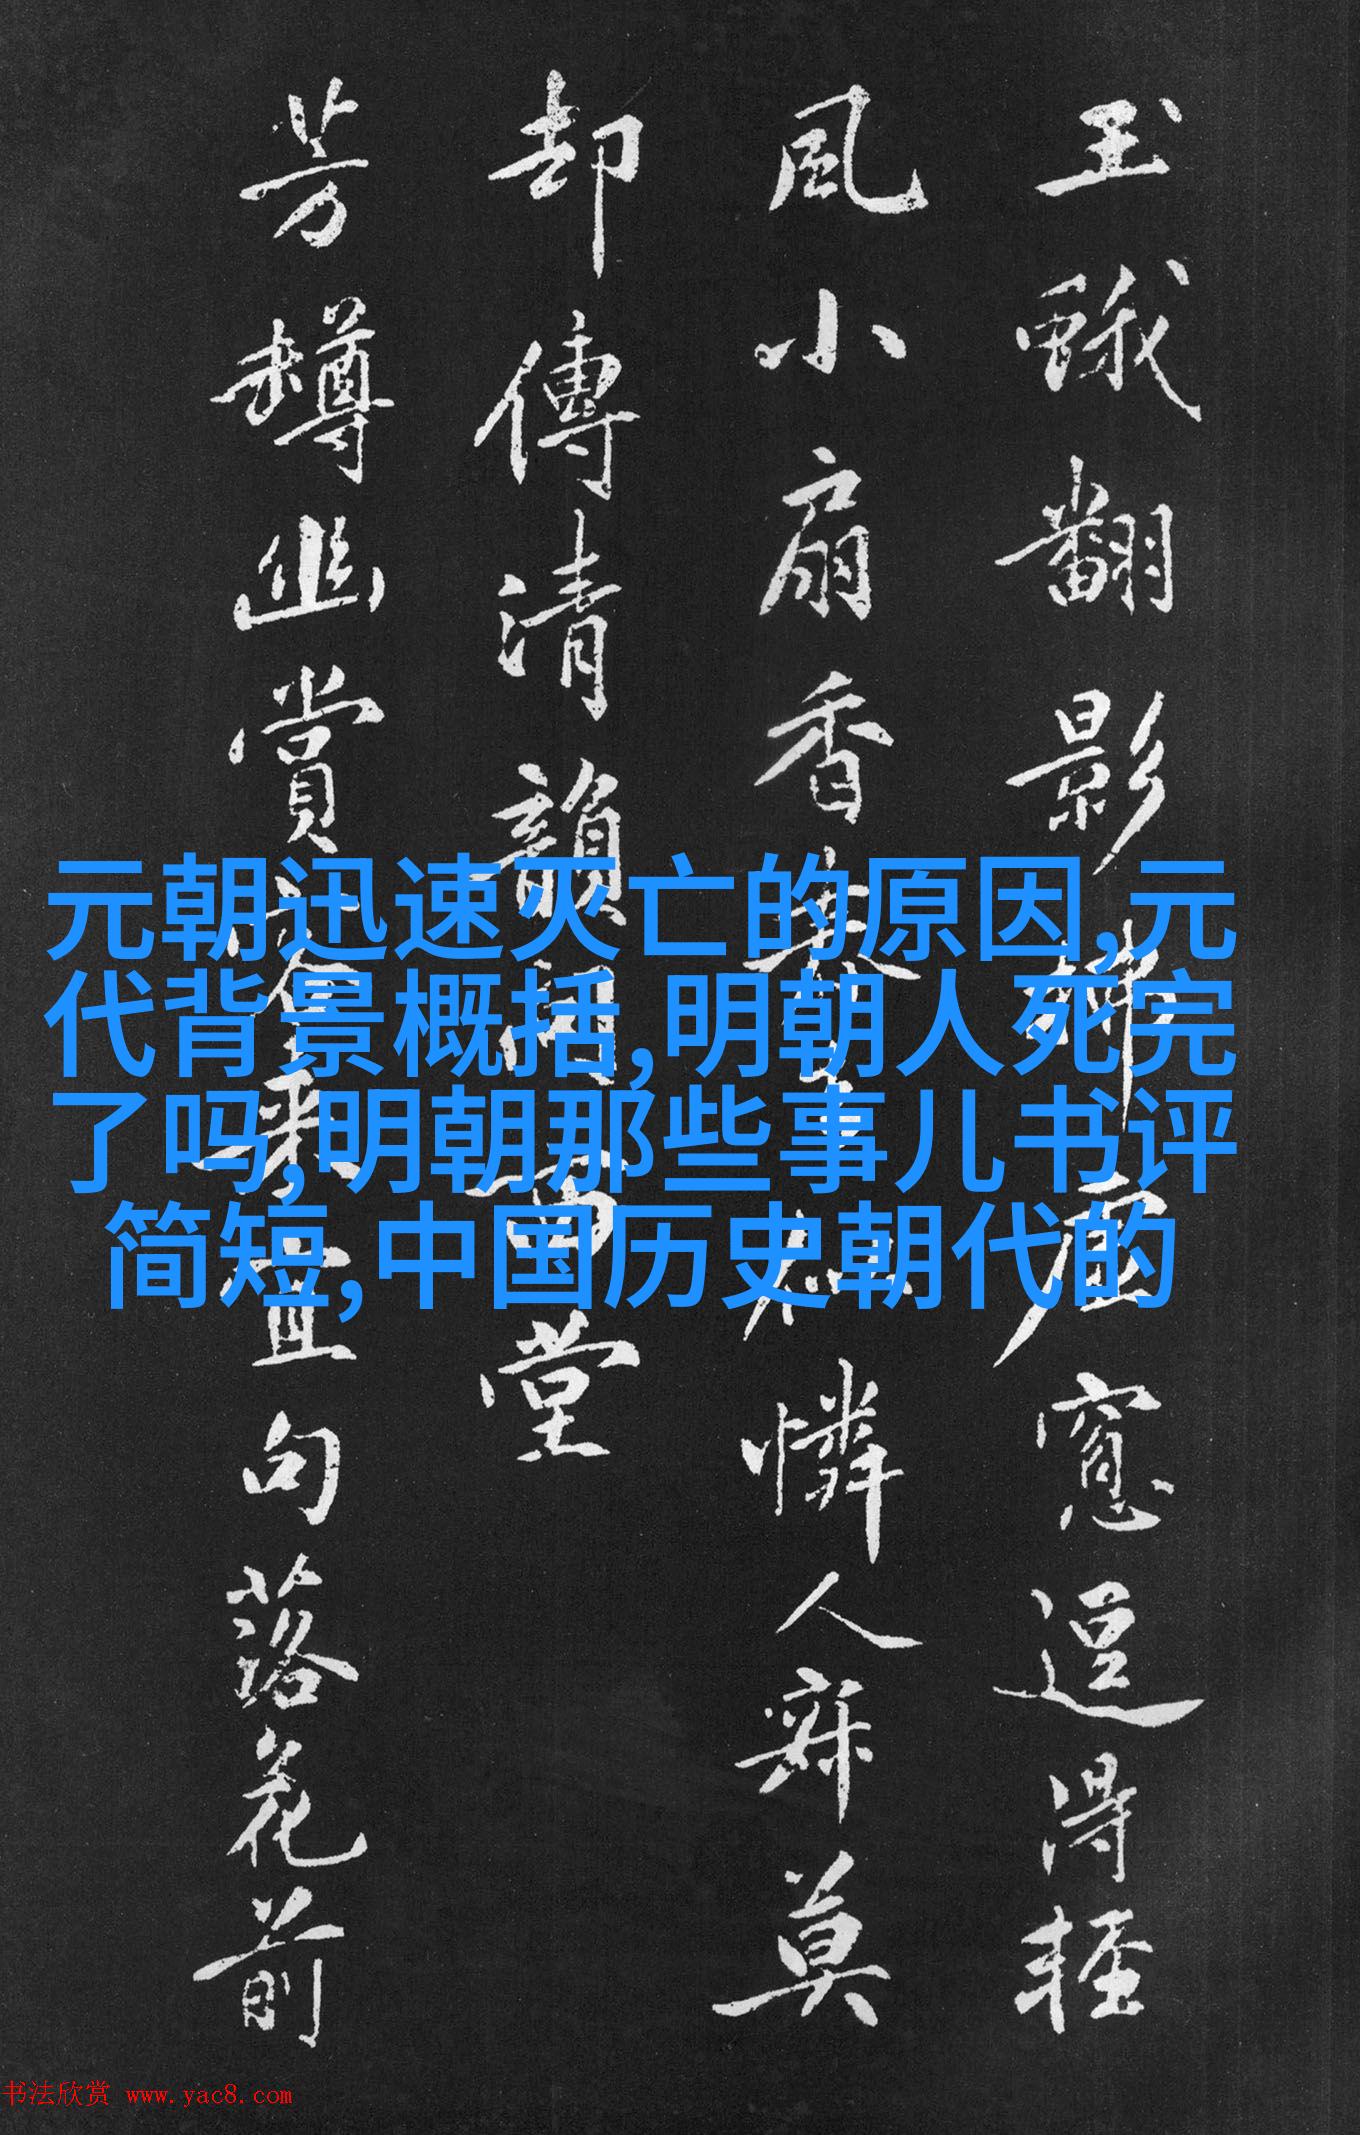 玉蛾翻影窻逗得輕
風小扇香憐人寐莫
却傳清韻堂
芳罇幽賞宜句落花前
元朝迅速灭亡的原因,元
代背景概括,明朝人死完
了吗,明朝那些事儿书评
简短,中国历史朝代的
书法欣赏 www.yac8.com